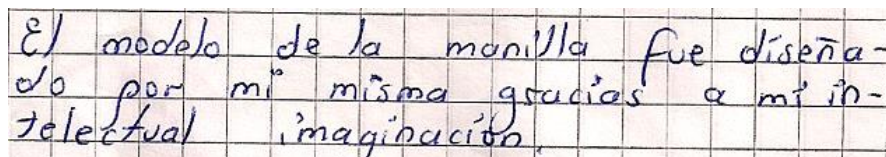 El modelo de la manilla fue diseña-
do por mi misma gracias a mi in-
telectual imaginación.